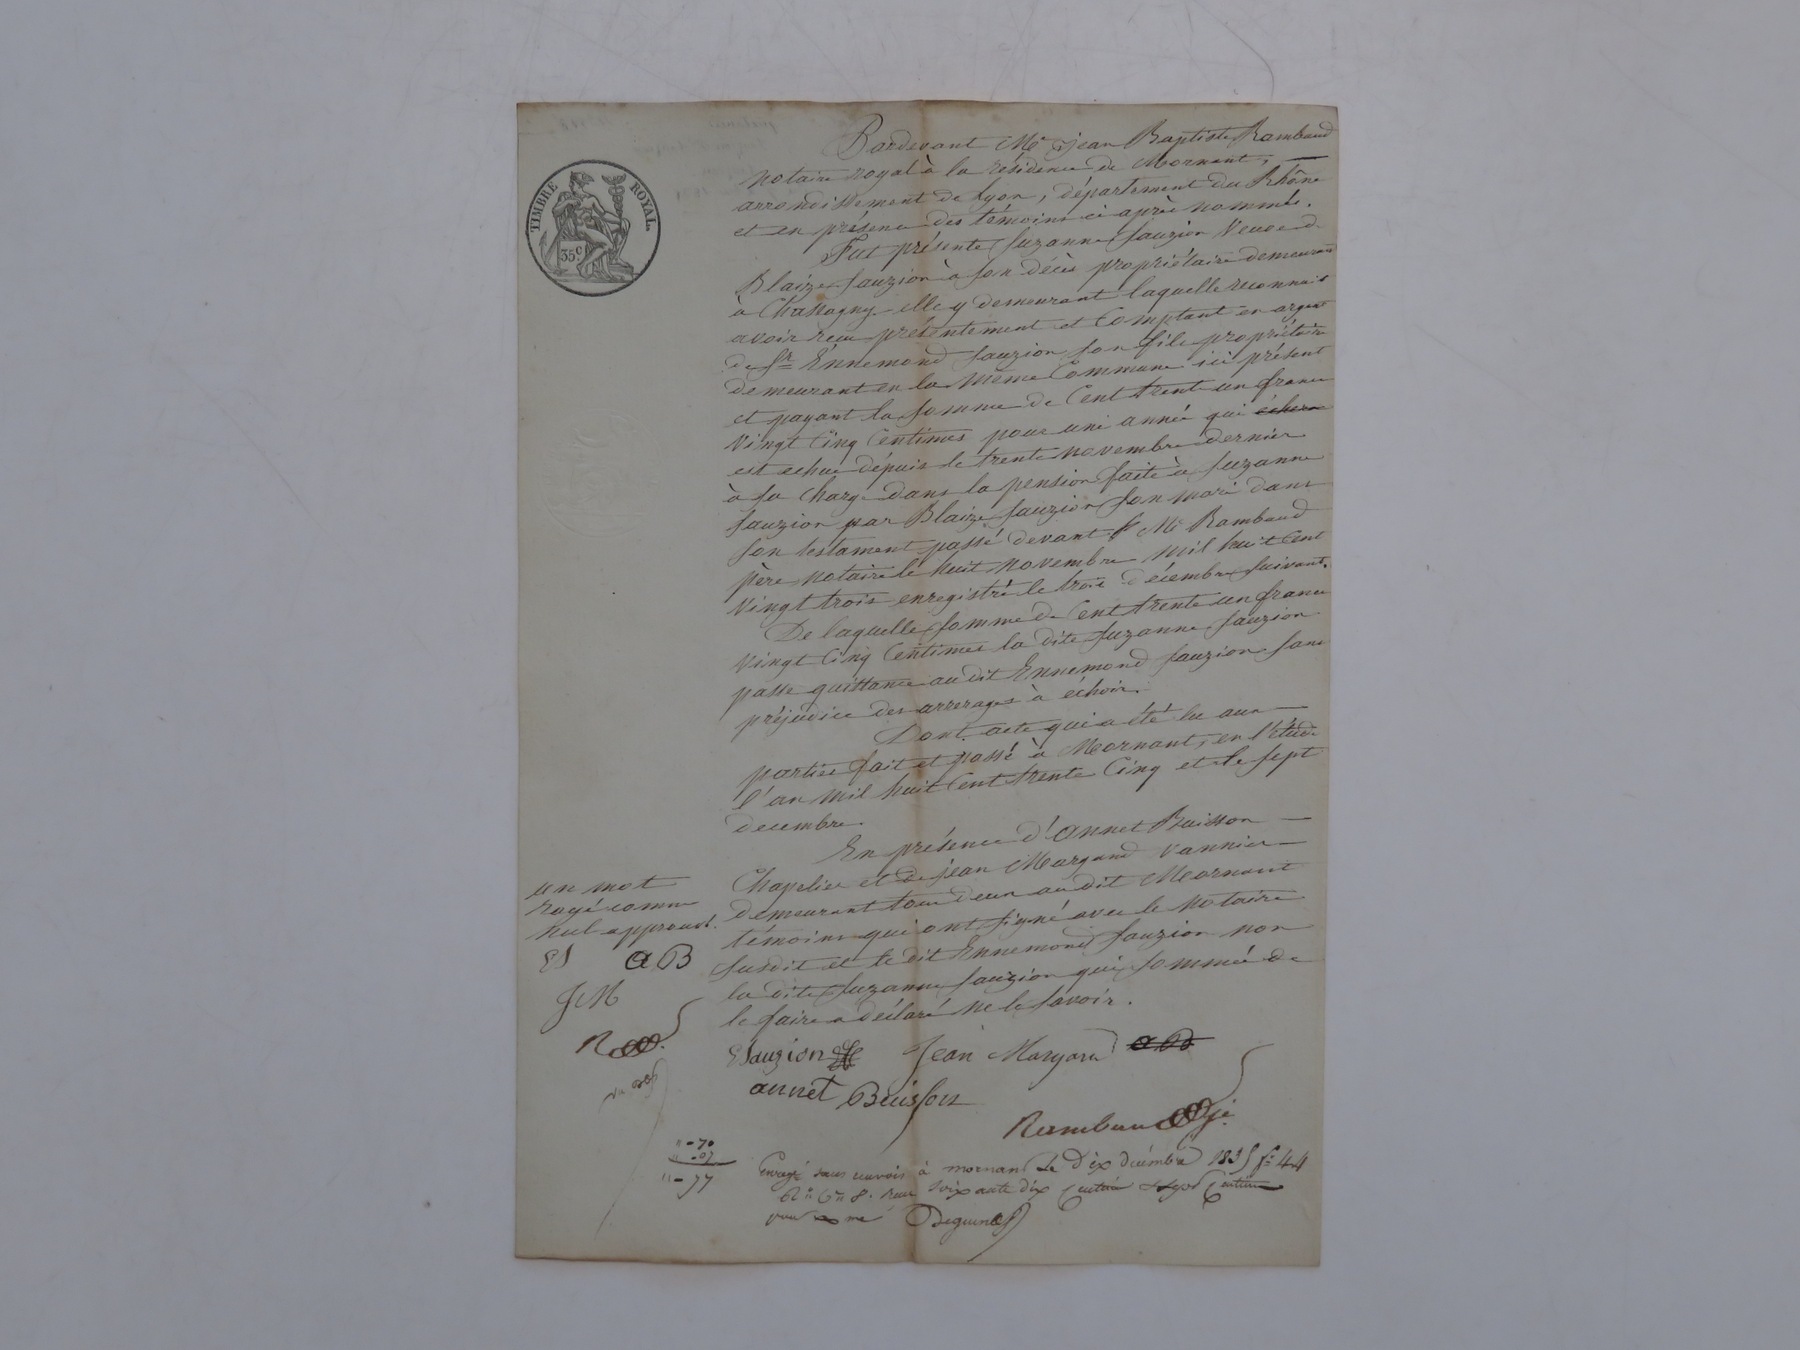 TIMBRE ROYAL
35c.
Pardevant Me Jean Baptiste Rambaud
notaire royal à la résidence de Mornant,
arrondissement de Lyon, département du Rhône
et en présence des témoins ci après nommés.
Fut présente Suzanne Sauzion Veuve de
Blaize Sauzion à son décès propriétaire demeurant
à Chassagny elle y demeurant laquelle reconnait
avoir reçu présentement et Comptant en argent
de Sr. Ennemond Sauzion son fils propriétaire
demeurant en la même Commune ici présent
et payant la somme de Cent trente un francs
vingt cinq Centimes pour une année qui
est echue dépuis le trente novembre dernier
à sa charge dans la pension faite à Suzanne
Sauzion par Blaize Sauzion son mari dans
son testament passé devant Me Rambaud
père notaire le huit novembre mil huit Cent
vingt trois enregistré le trois décembre suivant.
De laquelle somme de Cent trente un francs
vingt cinq Centimes la dite Suzanne Sauzion
passe quittance au dit Ennemond Sauzion sans
préjudice des arrerages à échoir.
Dont acte qui a été lu aux
parties fait et passé à Mornant, en l'étude
l'an mil huit Cent trente Cinq et le sept
decembre.
En présence d'Annet Buisson
Chapelier et de Jean Margand vannier
demeurant tous deux au dit Mornant
témoins qui ont signé avec le notaire
susdit et le dit Ennemond Sauzion non
la dite Suzanne Sauzion qui sommée de
le faire a déclaré ne le savoir.
un mot
rayé comme
nul approuvé.
ES AB
JM
R
ESauzion Jean Margand AB
annet Buisson
Rambaud
"-70
"-07
"-77
Enregé sans renvois à mornant Le Dix décembre 1835 fo 44
Ro Co 8. reçu soixante dix centimes sept Centimes
pour me